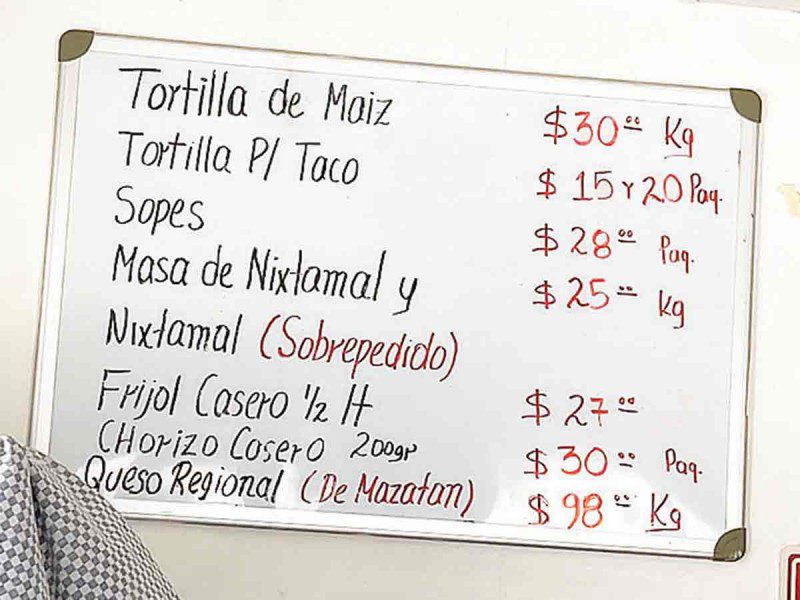 Tortilla de Maiz $30.00 Kg
Tortilla P/ Taco $ 15 Y 20 Paq.
Sopes $28.00 Paq.
Masa de Nixtamal y $25.00 Kg
Nixtamal (Sobrepedido)
Frijol Casero 1/2 lt $ 27.00
CHorizo Casero 200gr $30.00 Paq.
Queso Regional (De Mazatan) $98.00 Kg